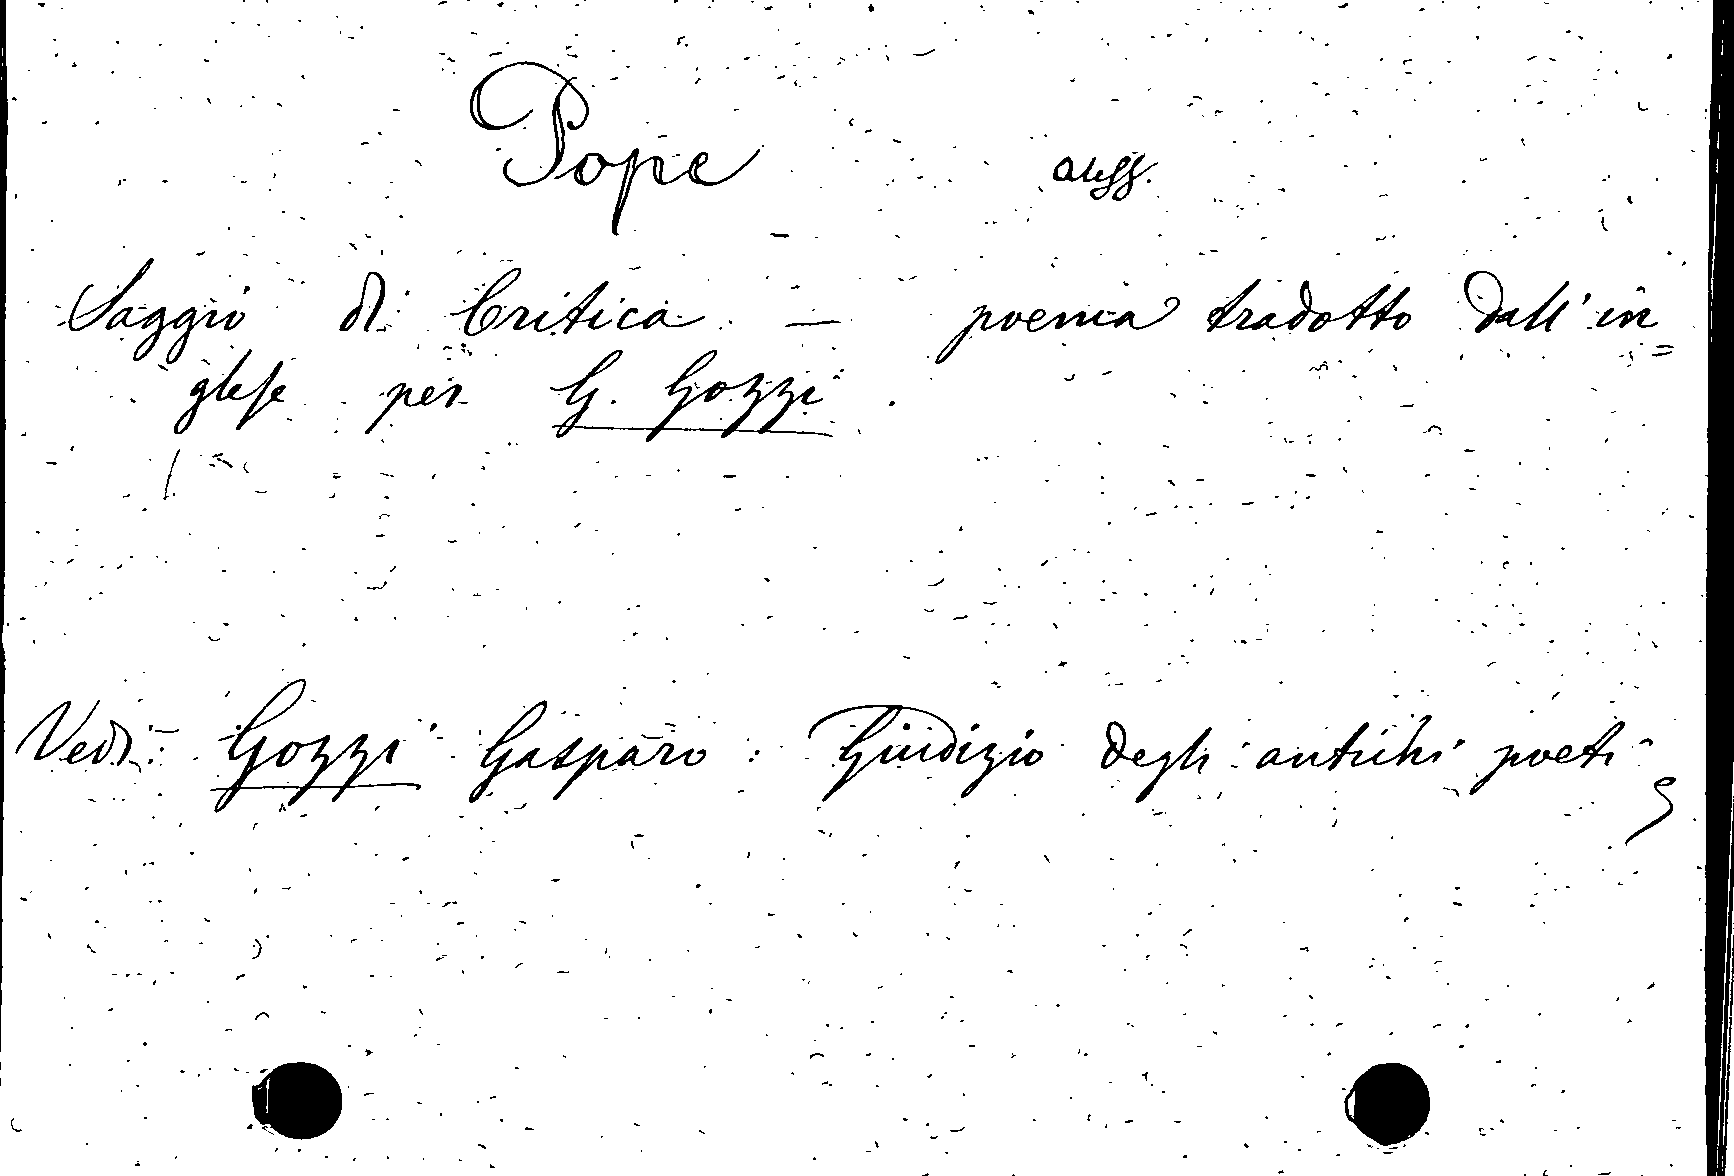 Pope Aless.
Saggio di Critica — poema tradotto dall'in=
glese per G. Gozzi.
Vedi: Gozzi Gasparo: Giudizio degli antichi poeti